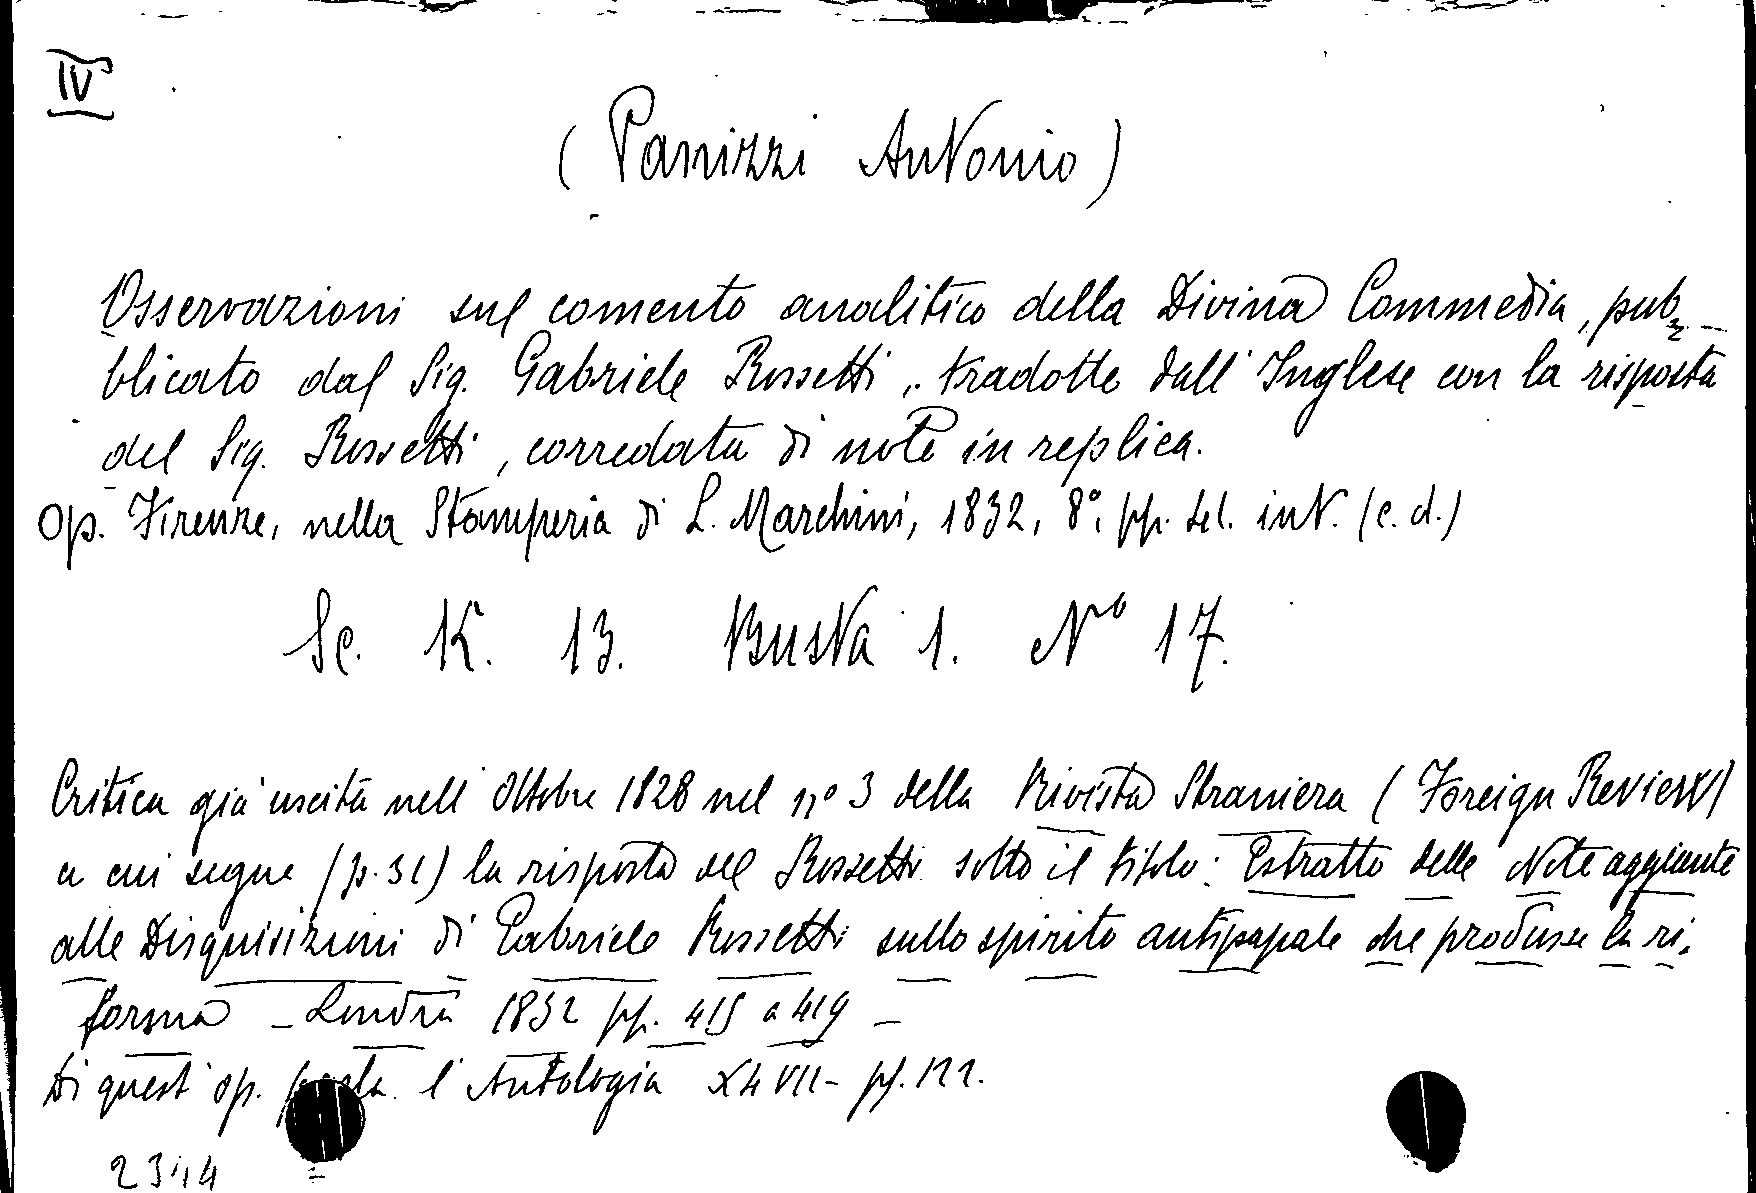 IV
(Panizzi Antonio)
Osservazioni sul comento analitico della Divina Commedia, pub-
blicato dal Sig. Gabriele Rossetti, tradotte dall'Inglese con la risposta
del Sig. Rossetti, corredata di note in replica.
Op. Firenze, nella Stamperia di L. Marchini, 1832, 8°, pp. int. (c. d.)
Sc. K. 13. Busta 1. N° 17.
Critica già uscita nell'Ottobre 1828 nel n° 3 della Rivista Straniera (Foreign Review)
a cui segue (p. 31) la risposta del Rossetti sotto il titolo: Estratto delle Note aggiunte
alle Disquisizioni di Gabriele Rossetti sullo spirito antipapale che produsse la ri-
forma _ Londra 1832 pp. 415 a 419 _
Di quest'op. parla l'Antologia pp. 122.